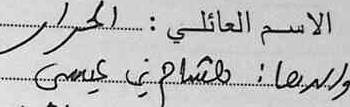 الاسم العائلي : الحرار
والدها : هشام بن عيسى